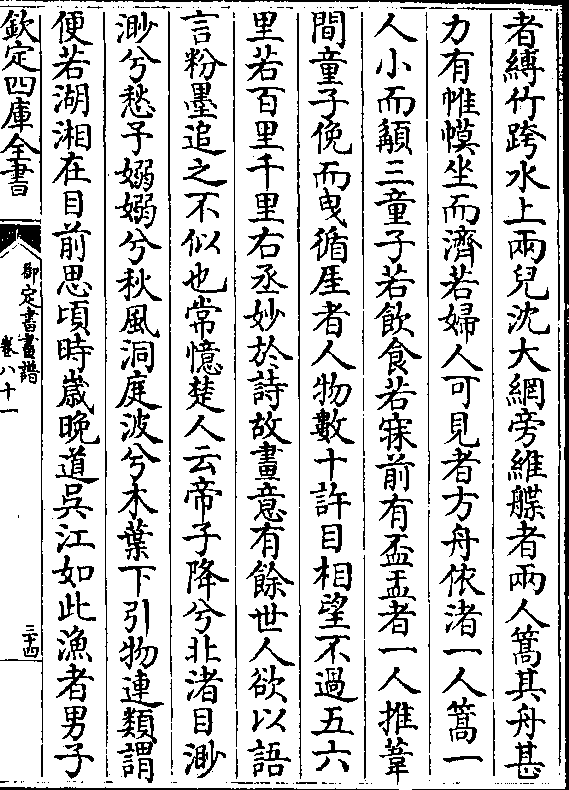 者縛竹跨水上兩兒沈大網旁維艓者兩人篙其舟甚
力有帷幙坐而濟若婦人可見者方舟依渚一人篙一
人小而顓三童子若飲食若寐前有盃盂者一人推葦
間童子俛而曳循厓者人物數十許目相望不過五六
里若百里千里右丞妙於詩故畫意有餘世人欲以語
言粉墨追之不似也常憶楚人云帝子降兮北渚目渺
渺兮愁予嫋嫋兮秋風洞庭波兮木葉下引物連類謂
便若湖湘在目前思頃時歲晩道吳江如此漁者男子
欽定四庫全書
御定書畫譜
卷八十一
三十四